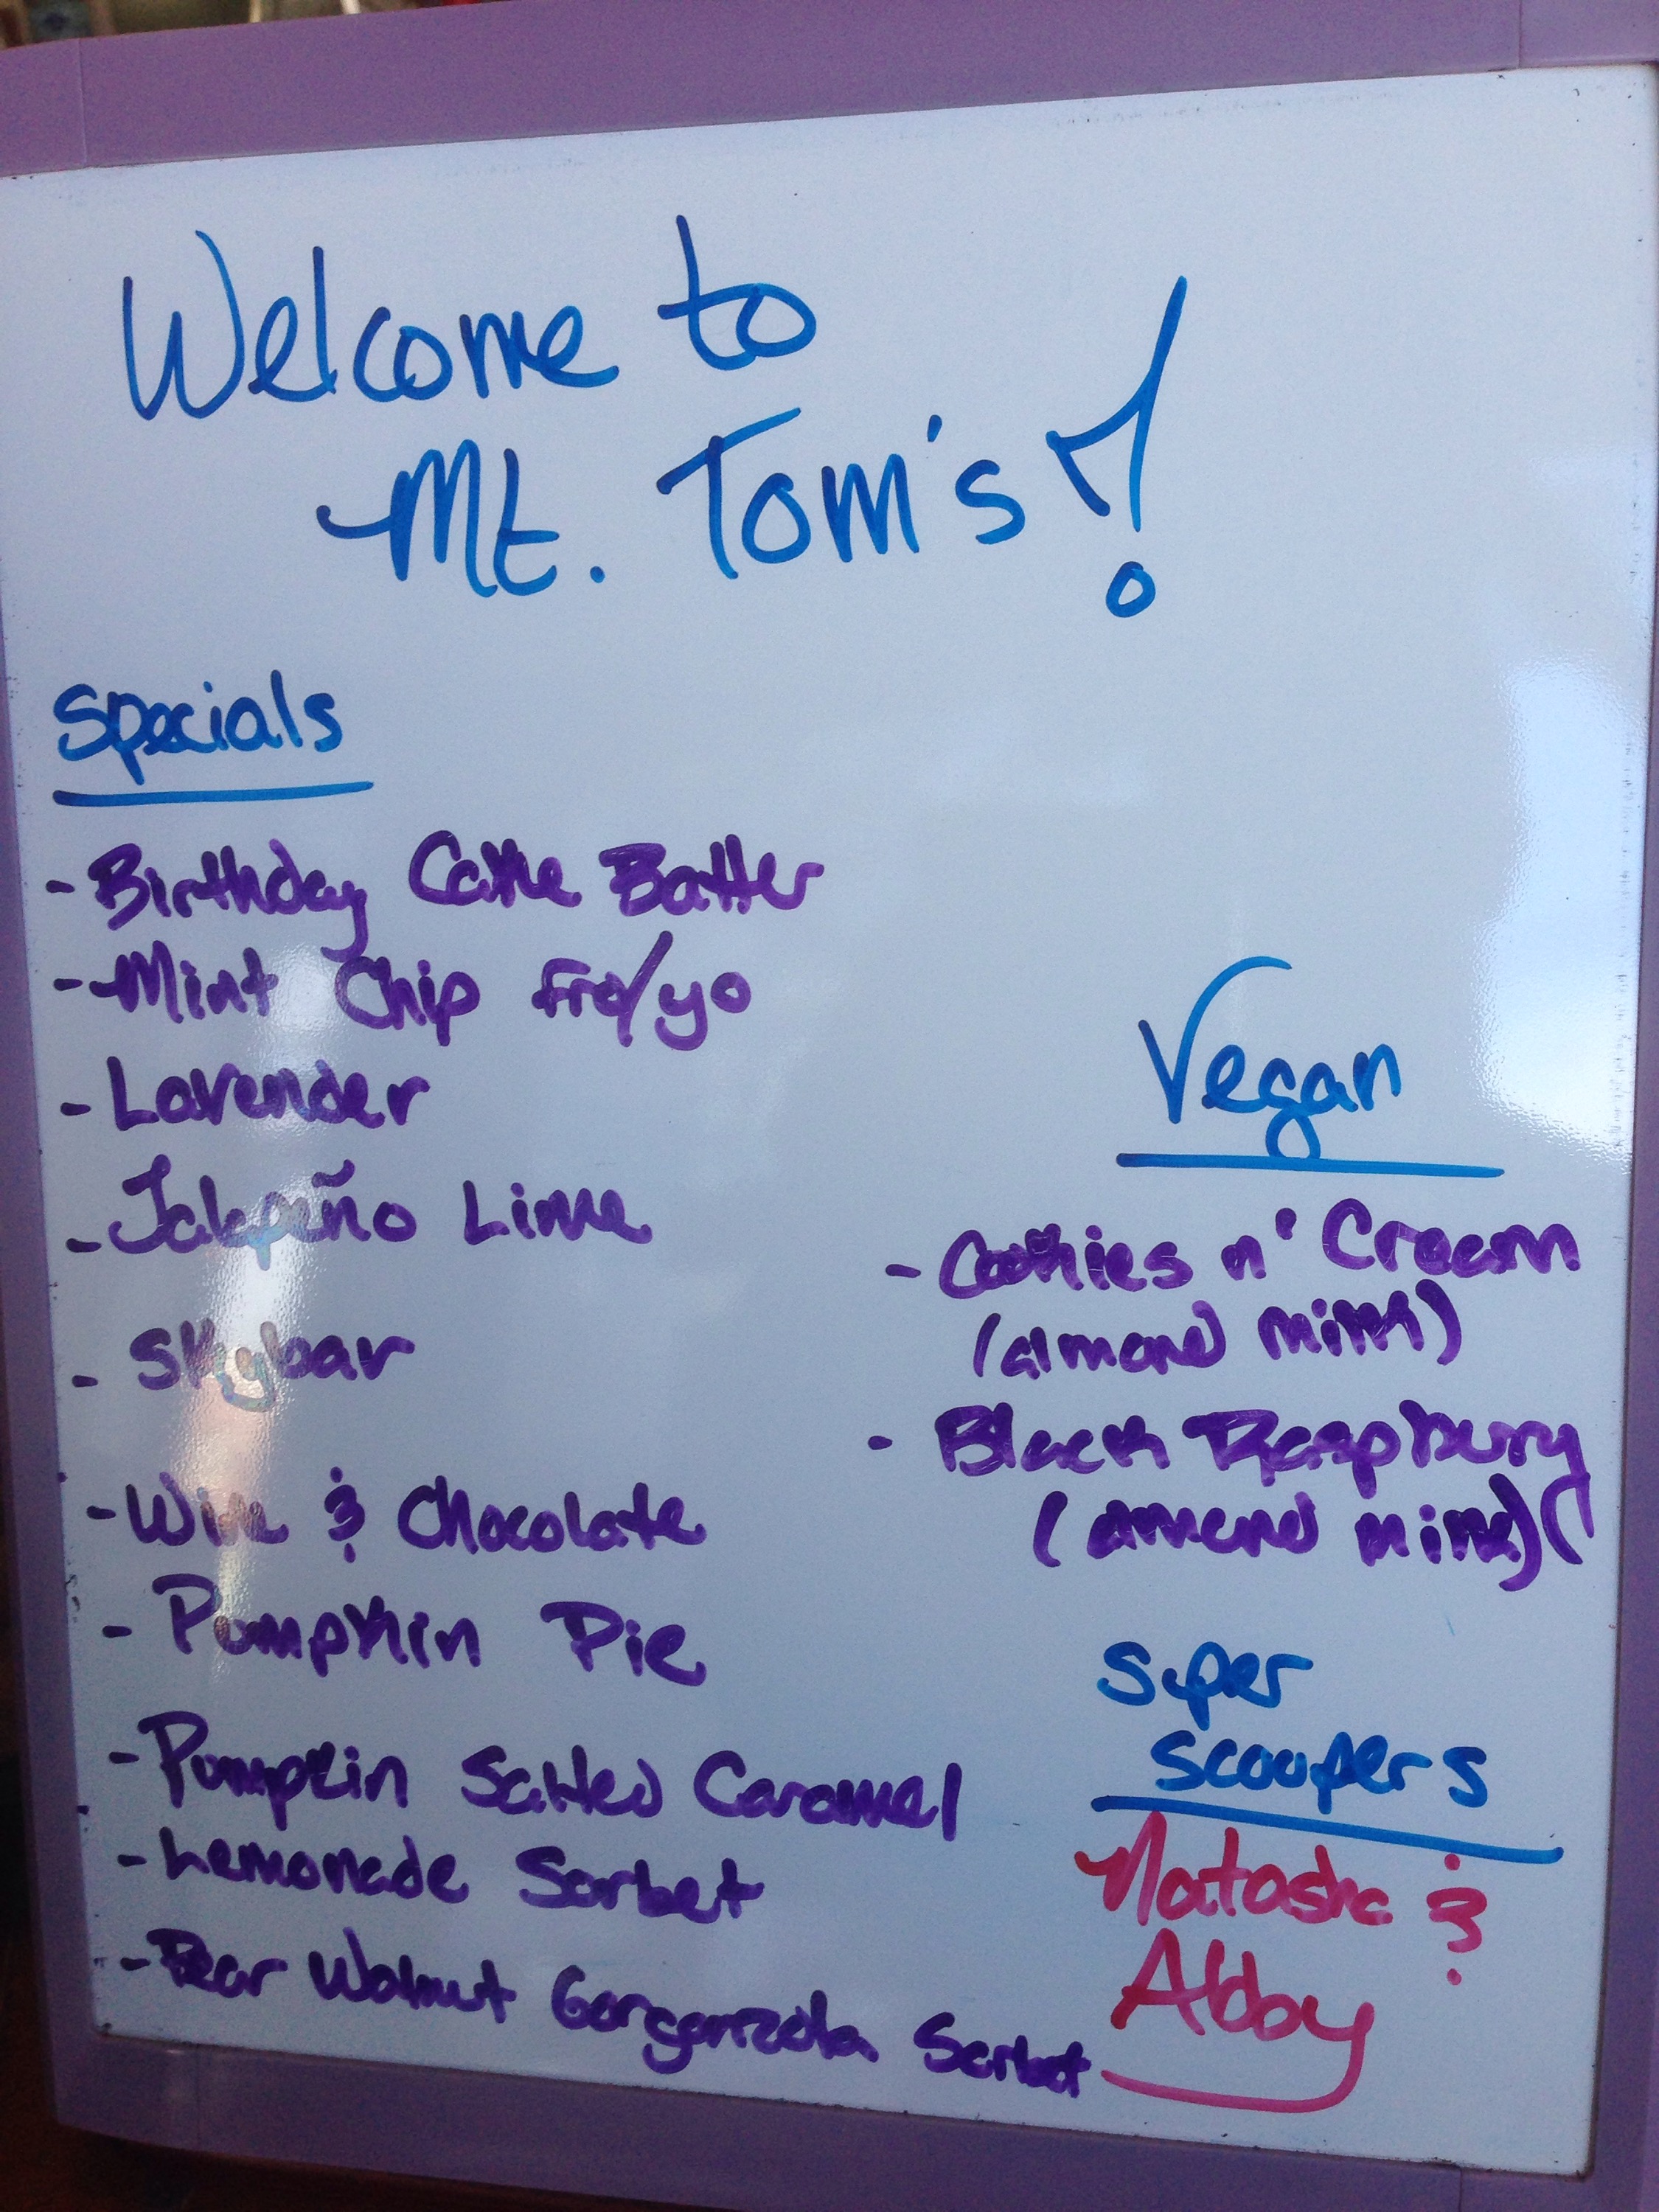 Welcome to
Mt. Tom's!
Specials
- Birthday Cake Batter
- Mint Chip Fro/yo
- Lavender
- Jalapeño Lime
- Skybar
- Wine & Chocolate
- Pumpkin Pie
- Pumpkin Salted Caramel
- Lemonade Sorbet
- Pear Walnut Gorgonzola Sorbet
Vegan
- Cookies n' Cream
(almond milk)
- Black Raspburry
(almond milk)
Super
Scoopers
Natasha &
Abby